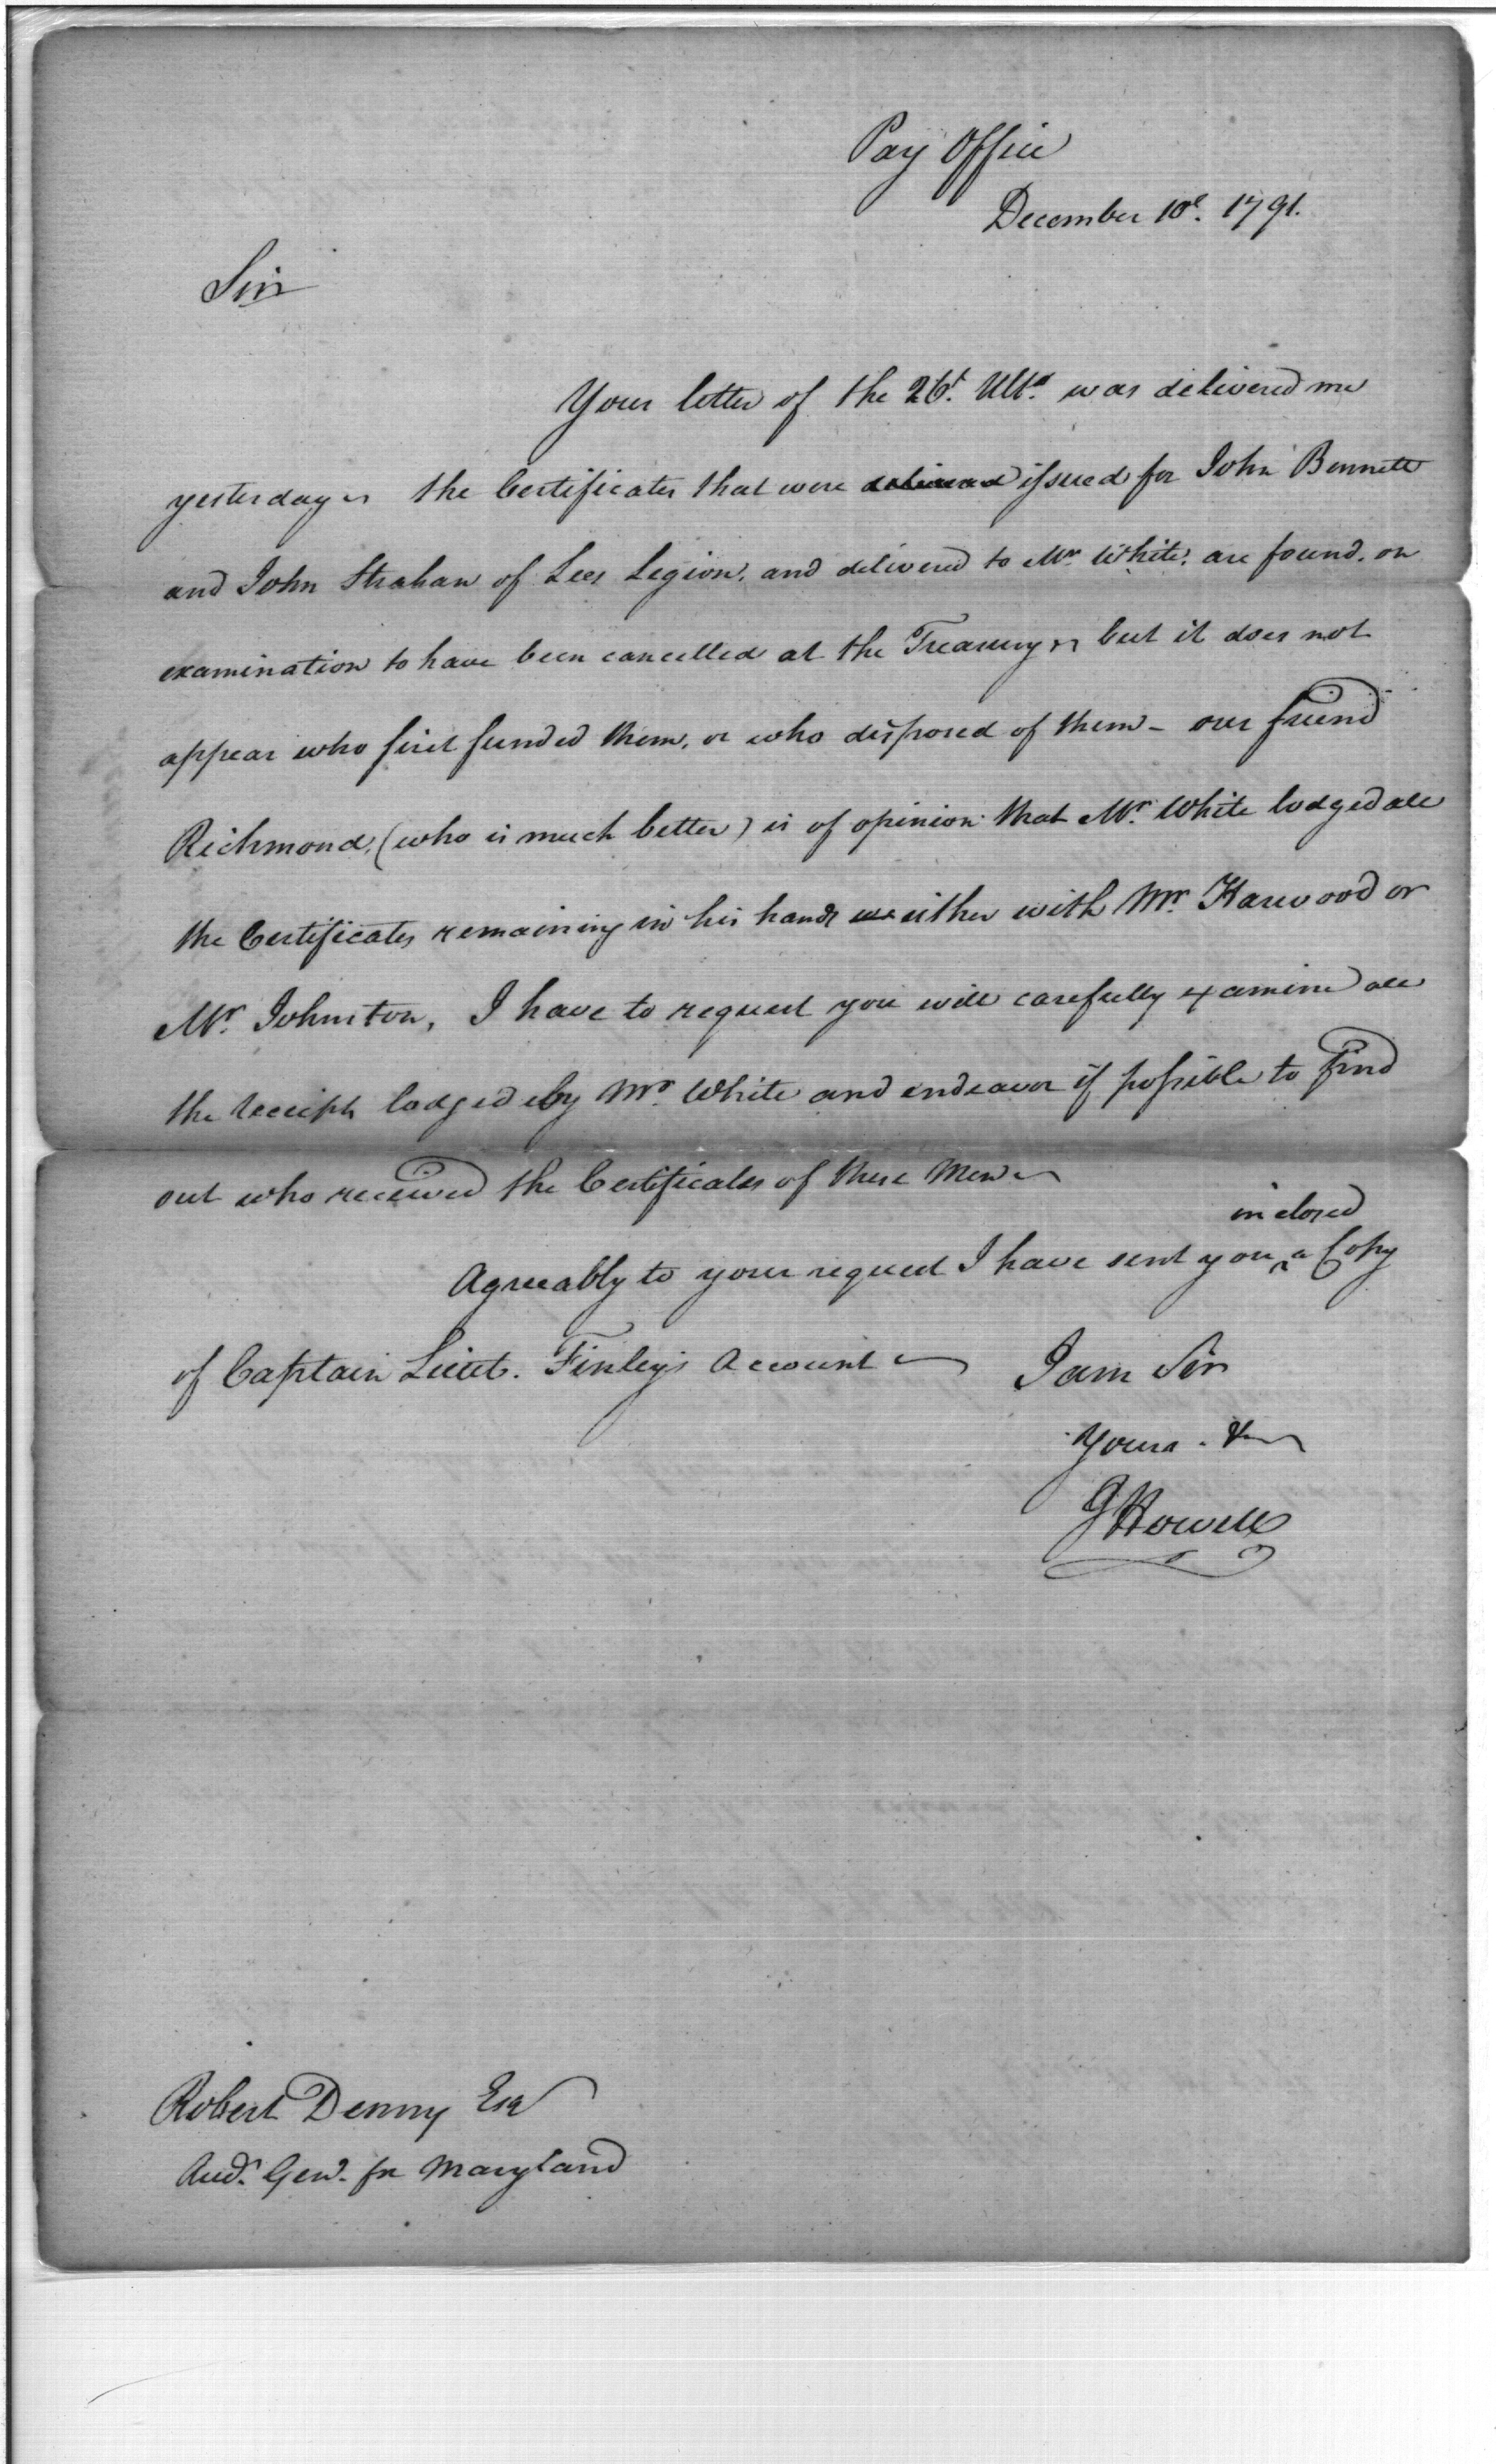 Pay Office
December 10th. 1791.
Sir
Your letter of the 26t. Ulto. was delivered me
yesterday ~ the Certificates that were delivered issued for John Bennett
and John Strahan of Lees Legion, and delivered to Mr. White, are found, on
examination to have been cancelled at the Treasury ~ but it does not
appear who first funded them, or who disposed of them - our friend
Richmond, (who is much better) is of opinion that Mr. White lodged all
the Certificates remaining in his hands either with Mr. Harwood or
Mr. Johnston, I have to request you will carefully examine all
the receipts lodged by Mr. White and endeavor if possible to find
out who received the Certificates of these Men ~
inclosed
Agreeably to your request I have sent you ^ a Copy
of Captain Lieut. Finley's Account ~ I am Sir
Yours &
J Howell
Robert Denny Esq
Audr. Genl. for Maryland